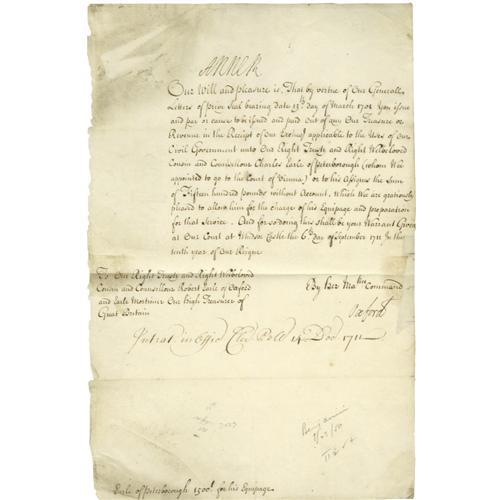 ANNE R
Our Will and pleasure is, That by virtue of Our Generall
Letters of privy Seal bearing date 13th day of March 1701 You issue
and pay or cause to be issued and paid out of any Our Treasure or
Revenue in the Receipt of Our Excheqr applicable to the Uses of Our
Civil Government unto Our Right Trusty and Right Welbeloved
Cousin and Councillour Charles Earle of Peterborough (whom We
appointed to go to the Court of Vienna) or to his Assignes the Sum
of Fifteen hundred pounds without Account, which We are graciously
pleased to allow him for the charge of his Equipage and preparation
for that Service. And for so doing this shall be your Warrant Given
at Our Court at Windsor Castle the 6th Day of September 1711 In the
tenth year of Our Reigne
To Our Right Trusty and Right Welbeloved
Cousin and Councillour Robert Earle of Oxford
and Earle Mortimer Our High Treasurer of
Great Britain
By Her Mats Command
Oxford
Intrat in Offic Cler Pell 14 Dec 1711
Benjamin
Earle of Peterborough 1500l for his Equipage